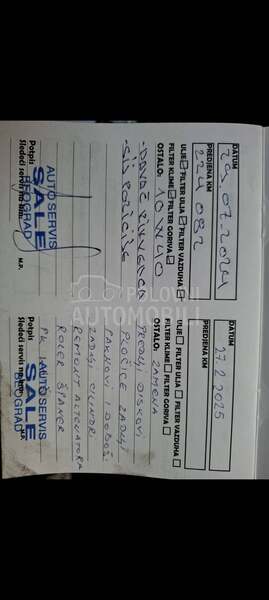 DATUM
24.07.2024
PREDJENA KM
224 082
ULJE FILTER ULJA FILTER VAZDUHA
FILTER KLIME FILTER GORIVA
OSTALO: 10W40
Potpis
AUTO SERVIS
SALE
BEOGRAD
Sledeći servis na km.
M.P.
DATUM
27.2.2025
PREDJENA KM
ULJE FILTER ULJA FILTER VAZDUHA
FILTER KLIME FILTER GORIVA
OSTALO: ZAMENA
PREDNJI DISKOVI
PLOČICE ZADNJI
PAKNOVI I DOBOŠI
ZADNJI CILINDRI
REMONT ALTENATORA
ROLER ŠPANER
PK
Potpis
AUTO SERVIS
SALE
BEOGRAD
Sledeći servis na km.
Polovni
AUTOMOBILI